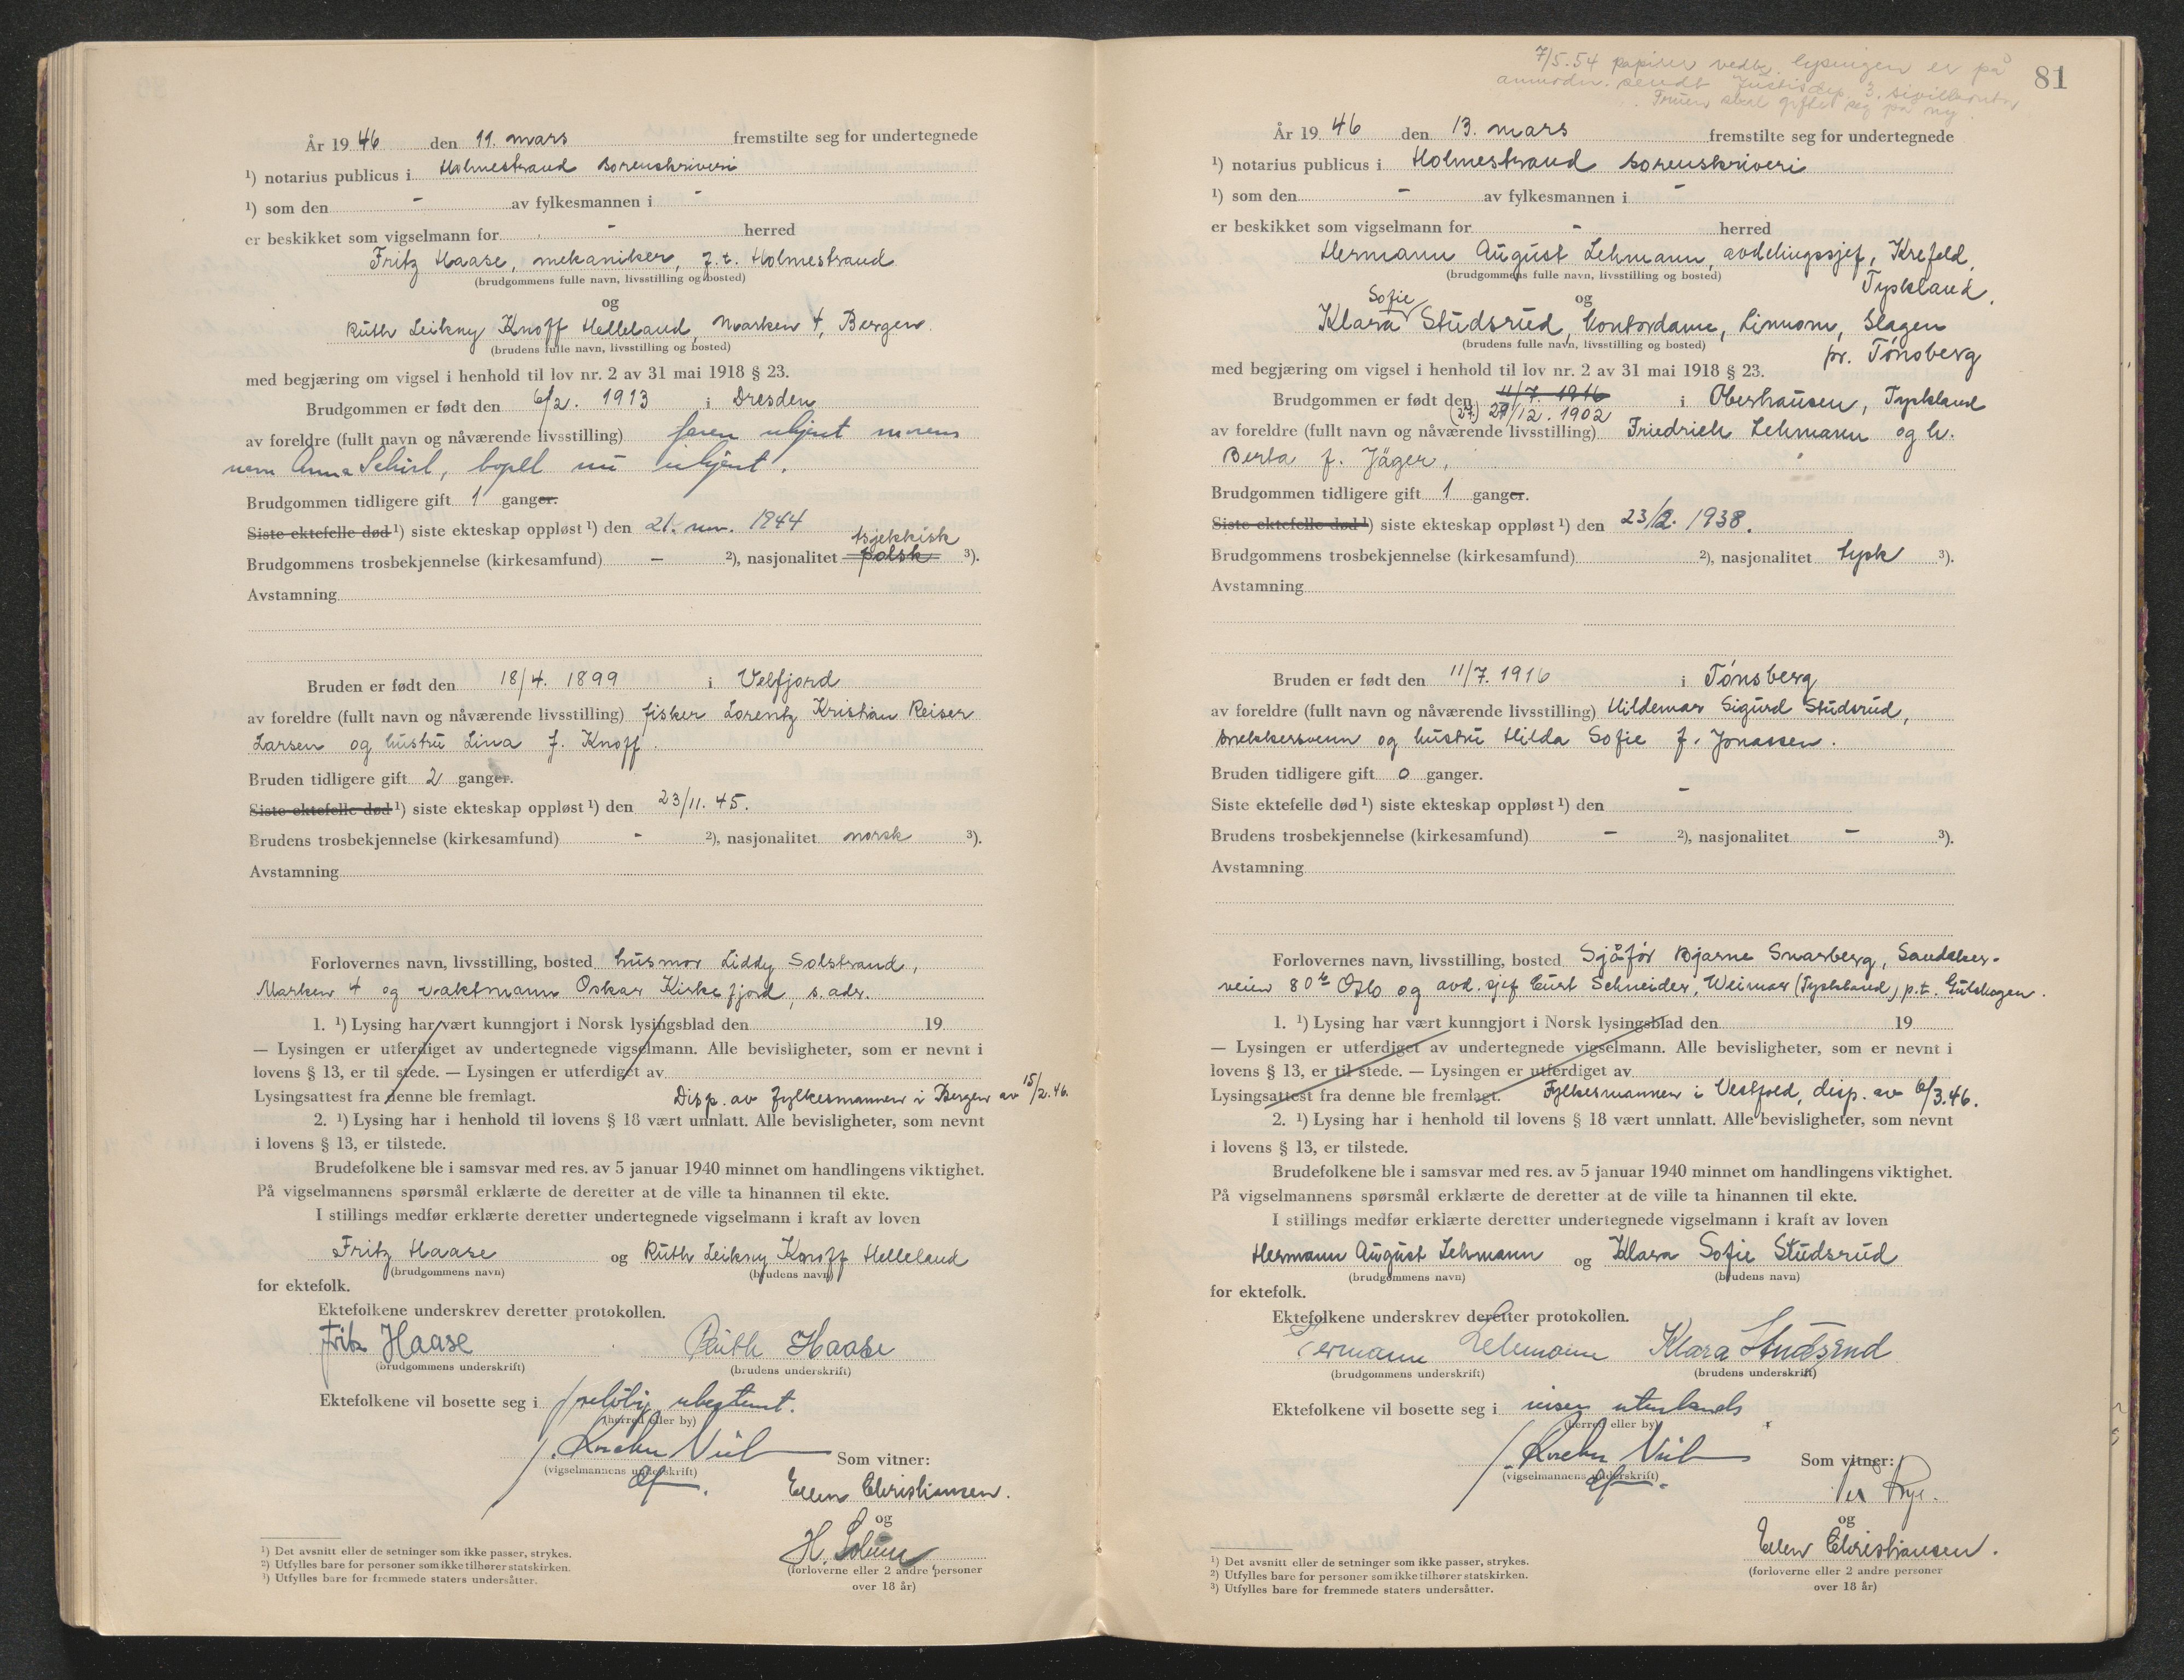 År 1946 den 11. mars fremstilte seg for undertegnede
¹) notarius publicus i Holmestrand sorenskriveri
¹) som den - av fylkesmannen i -
er beskikket som vigselmann for - herred
Fritz Haase, mekaniker, z.t. Holmestrand
(brudgommens fulle navn, livsstilling og bosted)
og
Ruth Leikny Knoff Helleland, Marken 4, Bergen.
(brudens fulle navn, livsstilling og bosted)
med begjæring om vigsel i henhold til lov nr. 2 av 31 mai 1918 § 23.
Brudgommen er født den 6/2. 1913 i Dresden
av foreldre (fullt navn og nåværende livsstilling) faren ukjent morens
navn Anna Schirl, bopel nu ukjent.
Brudgommen tidligere gift 1 ganger.
Siste ektefelle død ¹) siste ekteskap oppløst ¹) den 21. nov. 1944
tsjekkisk
Brudgommens trosbekjennelse (kirkesamfund) – ²), nasjonalitet polsk ³).
Avstamning
Bruden er født den 18/4. 1899 i Velfjord
av foreldre (fullt navn og nåværende livsstilling) fisker Lorentz Kristian Reiser
Larsen og hustru Lina f. Knoff.
Bruden tidligere gift 2 ganger.
Siste ektefelle død ¹) siste ekteskap oppløst ¹) den 23/11. 45.
Brudens trosbekjennelse (kirkesamfund) - ²), nasjonalitet norsk ³).
Avstamning
Forlovernes navn, livsstilling, bosted husmor Liddy Solstrand,
Marken 4 og vaktmann Oskar Kirkefjord, s. adr.
1. ¹) Lysing har vært kunngjort i Norsk lysingsblad den 19
— Lysingen er utferdiget av undertegnede vigselmann. Alle bevisligheter, som er nevnt i
lovens § 13, er til stede. — Lysingen er utferdiget av
Lysingsattest fra denne ble fremlagt. Disp. av fylkesmannen i Bergen av 15/2.46.
2. ¹) Lysing har i henhold til lovens § 18 vært unnlatt. Alle bevisligheter, som nevnt
i lovens § 13, er tilstede.
Brudefolkene ble i samsvar med res. av 5 januar 1940 minnet om handlingens viktighet.
På vigselmannens spørsmål erklærte de deretter at de ville ta hinannen til ekte.
I stillings medfør erklærte deretter undertegnede vigselmann i kraft av loven
Fritz Haase og Ruth Leikny Knoff Helleland
(brudgommens navn) (brudens navn)
for ektefolk.
Ektefolkene underskrev deretter protokollen.
Fritz Haase Ruth Haase
(brudgommens underskrift) (brudens underskrift)
Ektefolkene vil bosette seg i foreløbig ubestemt.
(herred eller by)
Som vitner:
(vigselmannens underskrift)
Ellen Christiansen.
og
H. Solum
(forloverne eller 2 andre personer
over 18 år)
¹) Det avsnitt eller de setninger som ikke passer, strykes.
²) Utfylles bare for personer som ikke tilhører statskirken.
³) Utfylles bare for fremmede staters undersåtter.
7/5.54 papirer vedr. lysingen er på
anmodn. sendt Justisdep. 3. sivilkontor
Fruen skal gifte seg på ny
81
År 1946 den 13. mars fremstilte seg for undertegnede
¹) notarius publicus i Holmestrand sorenskriveri
¹) som den - av fylkesmannen i -
er beskikket som vigselmann for - herred
Hermann August Lehmann, avdelingssjef, Krefeld,
(brudgommens fulle navn, livsstilling og bosted) Tyskland.
Sofie og
Klara Studsrud, kontordame, Linnom, Slagen
(brudens fulle navn, livsstilling og bosted) pr. Tønsberg
med begjæring om vigsel i henhold til lov nr. 2 av 31 mai 1918 § 23.
Brudgommen er født den 11/7. 1916 i Oberhausen, Tyskland
(27.) 27/12. 1902
av foreldre (fullt navn og nåværende livsstilling) Friedrich Lehmann og h.
Berta f. Jäger,
Brudgommen tidligere gift 1 ganger.
Siste ektefelle død ¹) siste ekteskap oppløst ¹) den 23/2. 1938.
Brudgommens trosbekjennelse (kirkesamfund) ²), nasjonalitet tysk ³).
Avstamning
Bruden er født den 11/7. 1916 i Tønsberg
av foreldre (fullt navn og nåværende livsstilling) Hildemar Sigurd Studsrud,
snekkersvenn og hustru Hilda Sofie f. Jonassen.
Bruden tidligere gift 0 ganger.
Siste ektefelle død ¹) siste ekteskap oppløst ¹) den -
Brudens trosbekjennelse (kirkesamfund) – ²), nasjonalitet – ³).
Avstamning
Forlovernes navn, livsstilling, bosted Sjåfør Bjarne Snarberg, Sandaker-
veien 80 b Oslo og avd. sjef Curt Schneider, Weimar (Tyskland) p.t. Gulskogen.
1. ¹) Lysing har vært kunngjort i Norsk lysingsblad den 19
— Lysingen er utferdiget av undertegnede vigselmann. Alle bevisligheter, som er nevnt i
lovens § 13, er til stede. — Lysingen er utferdiget av
Lysingsattest fra denne ble fremlagt. Fylkesmannen i Vestfold, disp. av 6/3.46.
2. ¹) Lysing har i henhold til lovens § 18 vært unnlatt. Alle bevisligheter, som nevnt
i lovens § 13, er tilstede.
Brudefolkene ble i samsvar med res. av 5 januar 1940 minnet om handlingens viktighet.
På vigselmannens spørsmål erklærte de deretter at de ville ta hinannen til ekte.
I stillings medfør erklærte deretter undertegnede vigselmann i kraft av loven
Hermann August Lehmann og Klara Sofie Studsrud
(brudgommens navn) (brudens navn)
for ektefolk.
Ektefolkene underskrev deretter protokollen.
Hermann Lehmann Klara Studsrud
(brudgommens underskrift) (brudens underskrift)
Ektefolkene vil bosette seg i reiser utenlands
(herred eller by)
Som vitner:
(vigselmannens underskrift)
Per Rye.
og
Ellen Christiansen.
(forloverne eller 2 andre personer
over 18 år)
¹) Det avsnitt eller de setninger som ikke passer, strykes.
²) Utfylles bare for personer som ikke tilhører statskirken.
³) Utfylles bare for fremmede staters undersåtter.